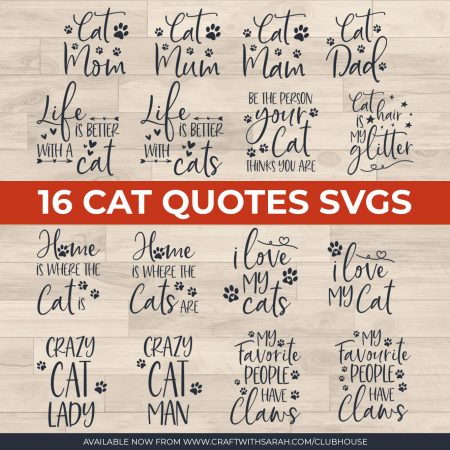 Cat
Mom
Cat
Mum
Cat
Mam
Cat
Dad
Life
IS BETTER
WITH A
cat
Life
IS BETTER
WITH
cats
BE THE PERSON
your
Cat
THINKS YOU ARE
Cat hair
IS MY
glitter
16 CAT QUOTES SVGS
Home
IS WHERE THE
Cat IS
Home
IS WHERE THE
Cats ARE
i love
MY
cats
i love
MY Cat
CRAZY
CAT
LADY
CRAZY
CAT
MAN
MY
Favorite
PEOPLE
HAVE
Claws
MY
Favourite
PEOPLE
HAVE
Claws
AVAILABLE NOW FROM WWW.CRAFTWITHSARAH.COM/CLUBHOUSE